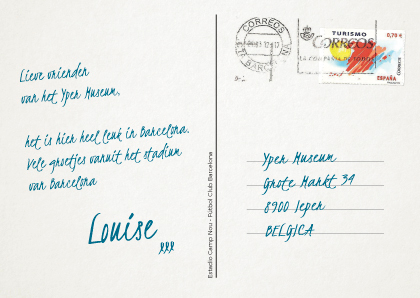 Lieve vrienden
van het Yper Museum,
het is hier heel leuk in Barcelona.
Vele groetjes vanuit het stadium
van Barcelona
Louise
Estadio Camp Nou - Futbol Club Barcelona
CORREOS
BARCELONA
CORREOS
TURISMO
0,70 €
CORREOS
ESPAÑA
Yper Museum
Grote Markt 34
8900 Ieper
BELGICA